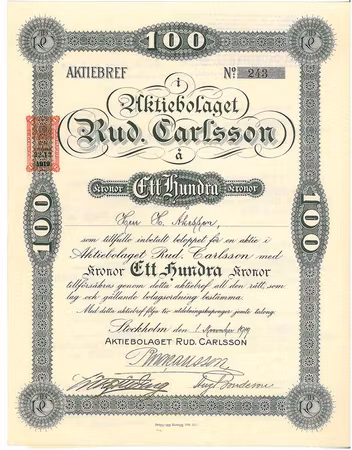 100
AKTIEBREF
No: 243
i
Aktiebolaget
Rud. Carlsson
å
Kronor Ett Hundra Kronor
Herr
som tillfullo inbetalt beloppet för en aktie i
Aktiebolaget Rud. Carlsson med
Kronor Ett Hundra Kronor
tillförsäkras genom detta aktiebref all den rätt, som
lag och gällande bolagsordning bestämma.
Med detta aktiebref följa utdelningskuponger jemte talong
Stockholm den 1 November 1919
AKTIEBOLAGET RUD. CARLSSON
100
100
100
1919